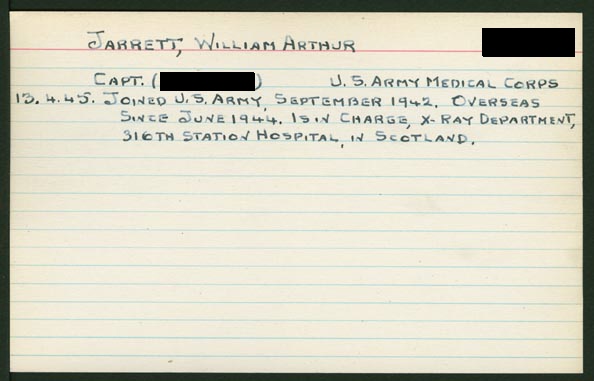 JARRETT, WILLIAM ARTHUR
CAPT. ( ) U.S. ARMY MEDICAL CORPS
13.4.45. JOINED U.S. ARMY, SEPTEMBER 1942. OVERSEAS
SINCE JUNE 1944. IS IN CHARGE, X-RAY DEPARTMENT,
316TH STATION HOSPITAL, IN SCOTLAND.